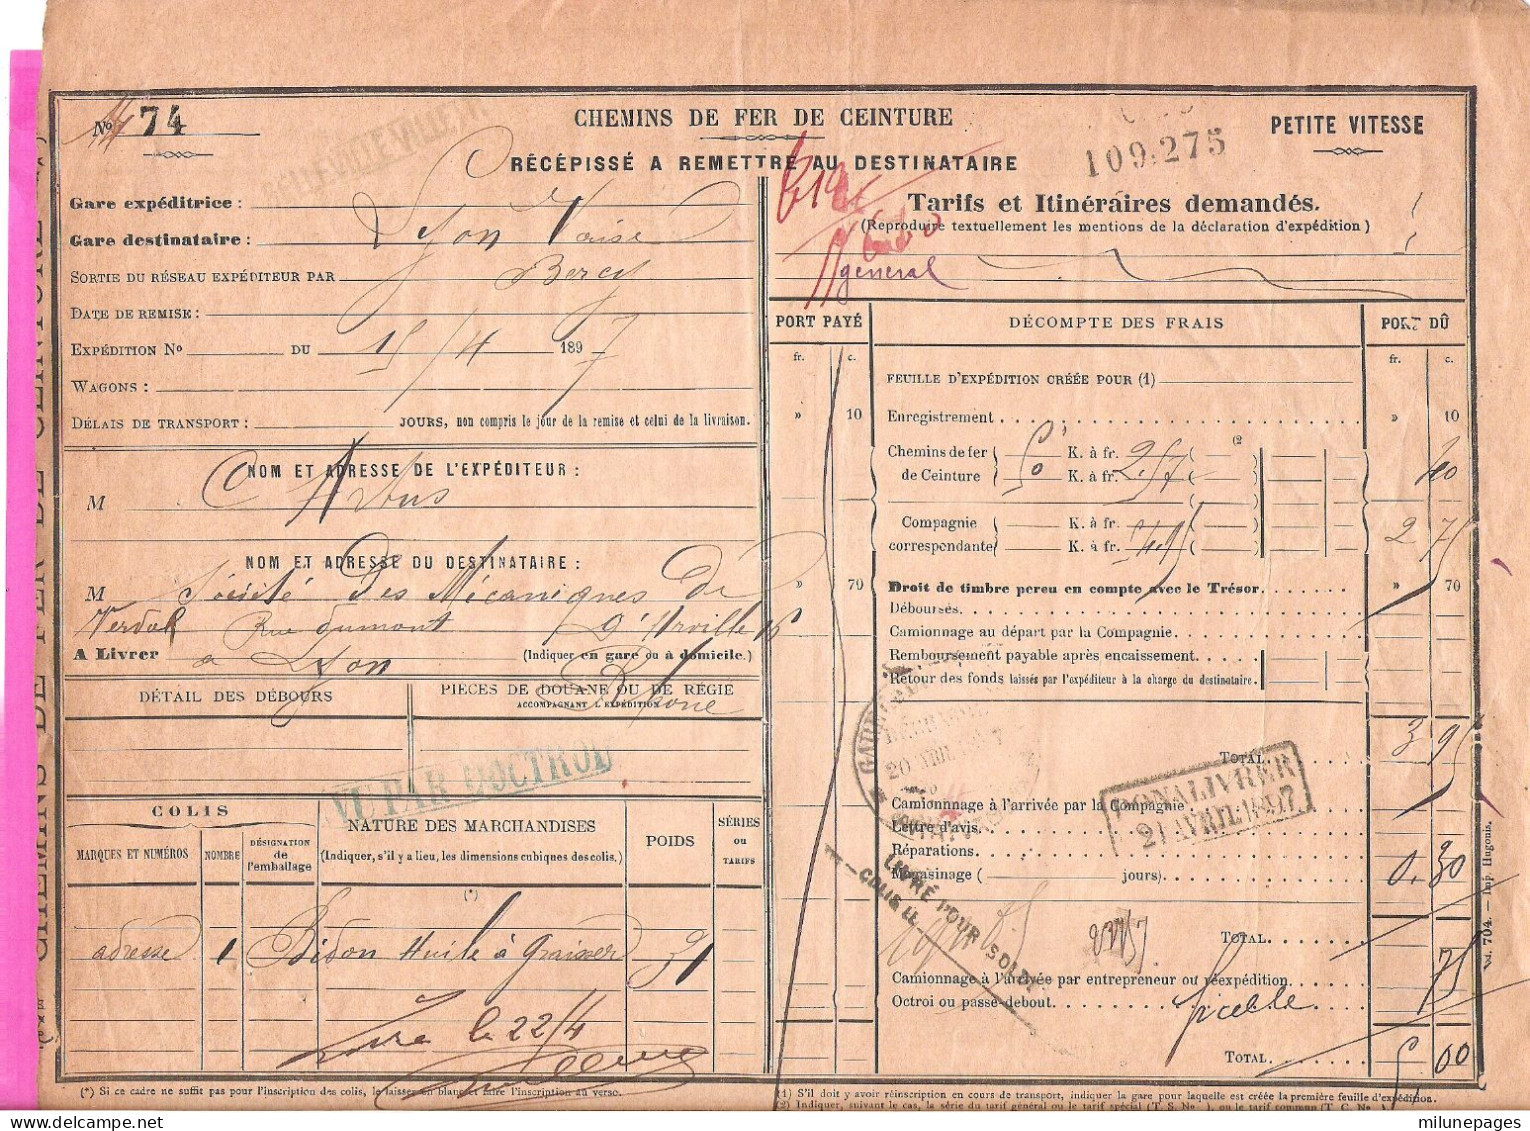 Nº 74
CHEMINS DE FER DE CEINTURE
109.275
PETITE VITESSE
RÉCÉPISSÉ A REMETTRE AU DESTINATAIRE
BELLEVILLE-VILLETTE
Gare expéditrice :
Gare destinataire : Lyon Vaise
SORTIE DU RÉSEAU EXPÉDITEUR PAR Bercy
DATE DE REMISE :
EXPÉDITION No DU 15/4 1897
WAGONS :
DÉLAIS DE TRANSPORT : JOURS, non compris le jour de la remise et celui de la livraison.
NOM ET ADRESSE DE L'EXPÉDITEUR :
M Arbus
NOM ET ADRESSE DU DESTINATAIRE :
M Société des Mécaniques de
Verdol Rue Dumont d'Urville 16
A LIVRER à Lyon (Indiquer en gare ou à domicile.)
Rhône
DÉTAIL DES DÉBOURS
PIÈCES DE DOUANE OU DE RÉGIE
ACCOMPAGNANT L'EXPÉDITION
VU PAR L'OCTROI
COLIS
MARQUES ET NUMÉROS
NOMBRE
DÉSIGNATION de l'emballage
NATURE DES MARCHANDISES
(Indiquer, s'il y a lieu, les dimensions cubiques des colis.)
(*)
POIDS
SÉRIES ou TARIFS
adresse 1 Bidon Huile à graisser 31
Livré le 22/4
(*) Si ce cadre ne suffit pas pour l'inscription des colis, le laisser en blanc et faire l'inscription au verso.
Tarifs et Itinéraires demandés.
(Reproduire textuellement les mentions de la déclaration d'expédition)
général
PORT PAYÉ
DÉCOMPTE DES FRAIS
PORT DÛ
fr. c.
fr. c.
FEUILLE D'EXPÉDITION CRÉÉE POUR (1)
» 10 Enregistrement » 10
Chemins de fer K. à fr. (2
de Ceinture K. à fr. 40
Compagnie K. à fr.
correspondante K. à fr. 2 75
» 70 Droit de timbre perçu en compte avec le Trésor » 70
Déboursés
Camionnage au départ par la Compagnie
Remboursement payable après encaissement
Retour des fonds laissés par l'expéditeur à la charge du destinataire.
TOTAL 3 95
20 AVRIL
CONALIVRER
21 AVRIL 1897
Camionnnage à l'arrivée par la Compagnie
Lettre d'avis
Réparations
Magasinage ( jours) 0.30
LIVRÉ POUR SOLDE
COLIS LE
TOTAL
Camionnage à l'arrivée par entrepreneur ou réexpédition 75
Octroi ou passe-debout
TOTAL 5 00
(1) S'il doit y avoir réinscription en cours de transport, indiquer la gare pour laquelle est créée la première feuille d'expédition.
(2) Indiquer, suivant le cas, la série du tarif général ou le tarif spécial (T. S. No ), ou le tarif commun (T. C. No
CHEMINS DE FER DE CEINTURE
Vd. 704. — Imp. Hugonis.
milunepages